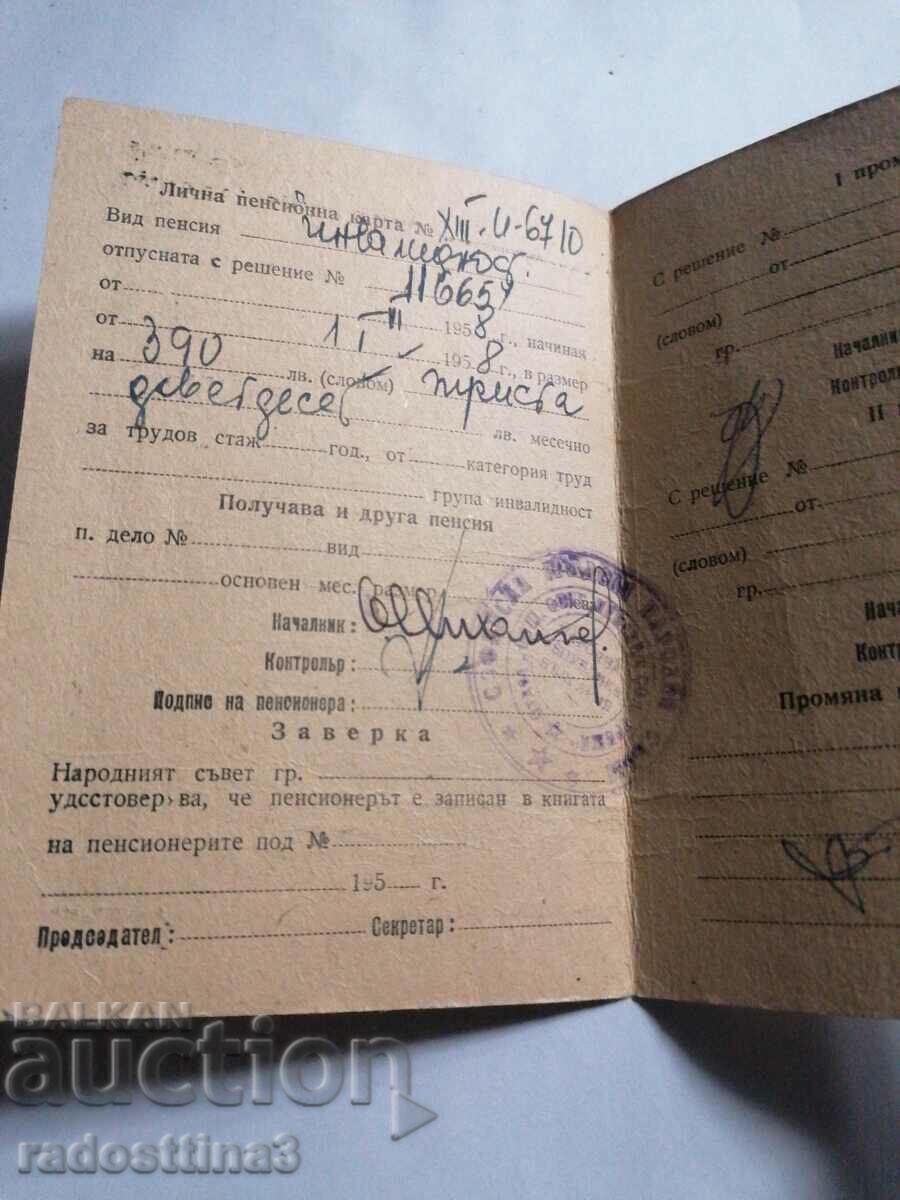 Лична пенсионна карта № XIII-И-6710
Вид пенсия инвалидност.
отпусната с решение № 116657
от 195 8 г., начиная
от 1 III 195 8 г., в размер
на 390 лв. (словом) триста
деветдесет лв. месечно
за трудов стаж год., от категория труд
група инвалидност
Получава и друга пенсия
п. дело № вид
основен мес. размер
Началник:
Контрольр:
Подпис на пенсионера:
Заверка
Народният съвет гр.
удсстоверява, че пенсионерът е записан в книгата
на пенсионерите под №
195 г.
Председател: Секретар:
I пром
С решение №
от
(словом)
гр.
Началник
Контрол
II
С решение №
от
(словом)
гр.
Нача
Контр
Промяна
BALKAN
auction
radosttina3